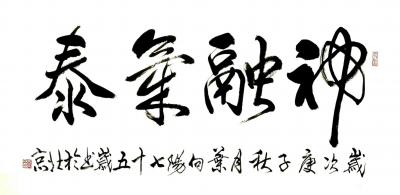 神融氣泰
歲次庚子秋月葉向陽七十五歲書於北京